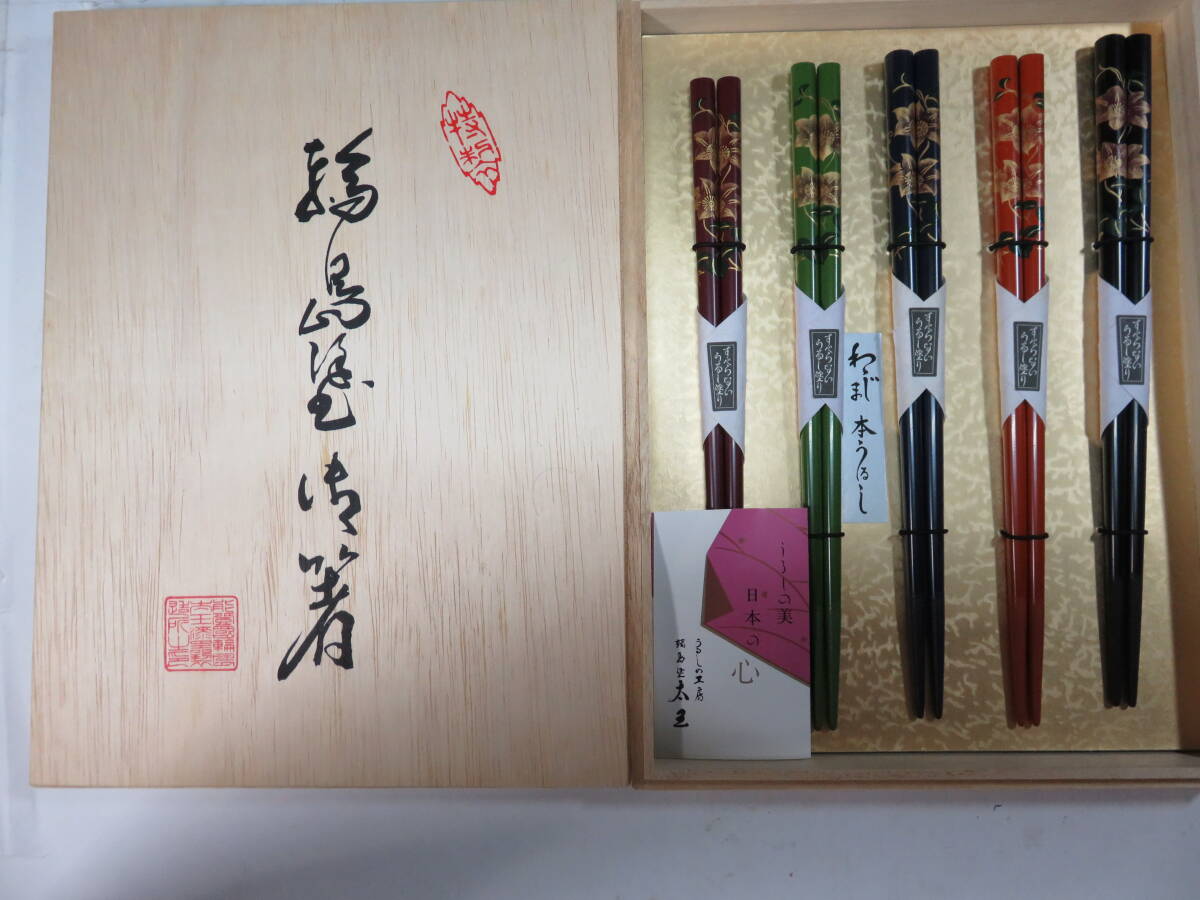 特製
輪島塗御箸
すべらない
うるし塗り
すべらない
うるし塗り
すべらない
うるし塗り
すべらない
うるし塗り
すべらない
うるし塗り
わじま 本うるし
うるしの美
日本の心
うるしの工房
輪島塗 太王